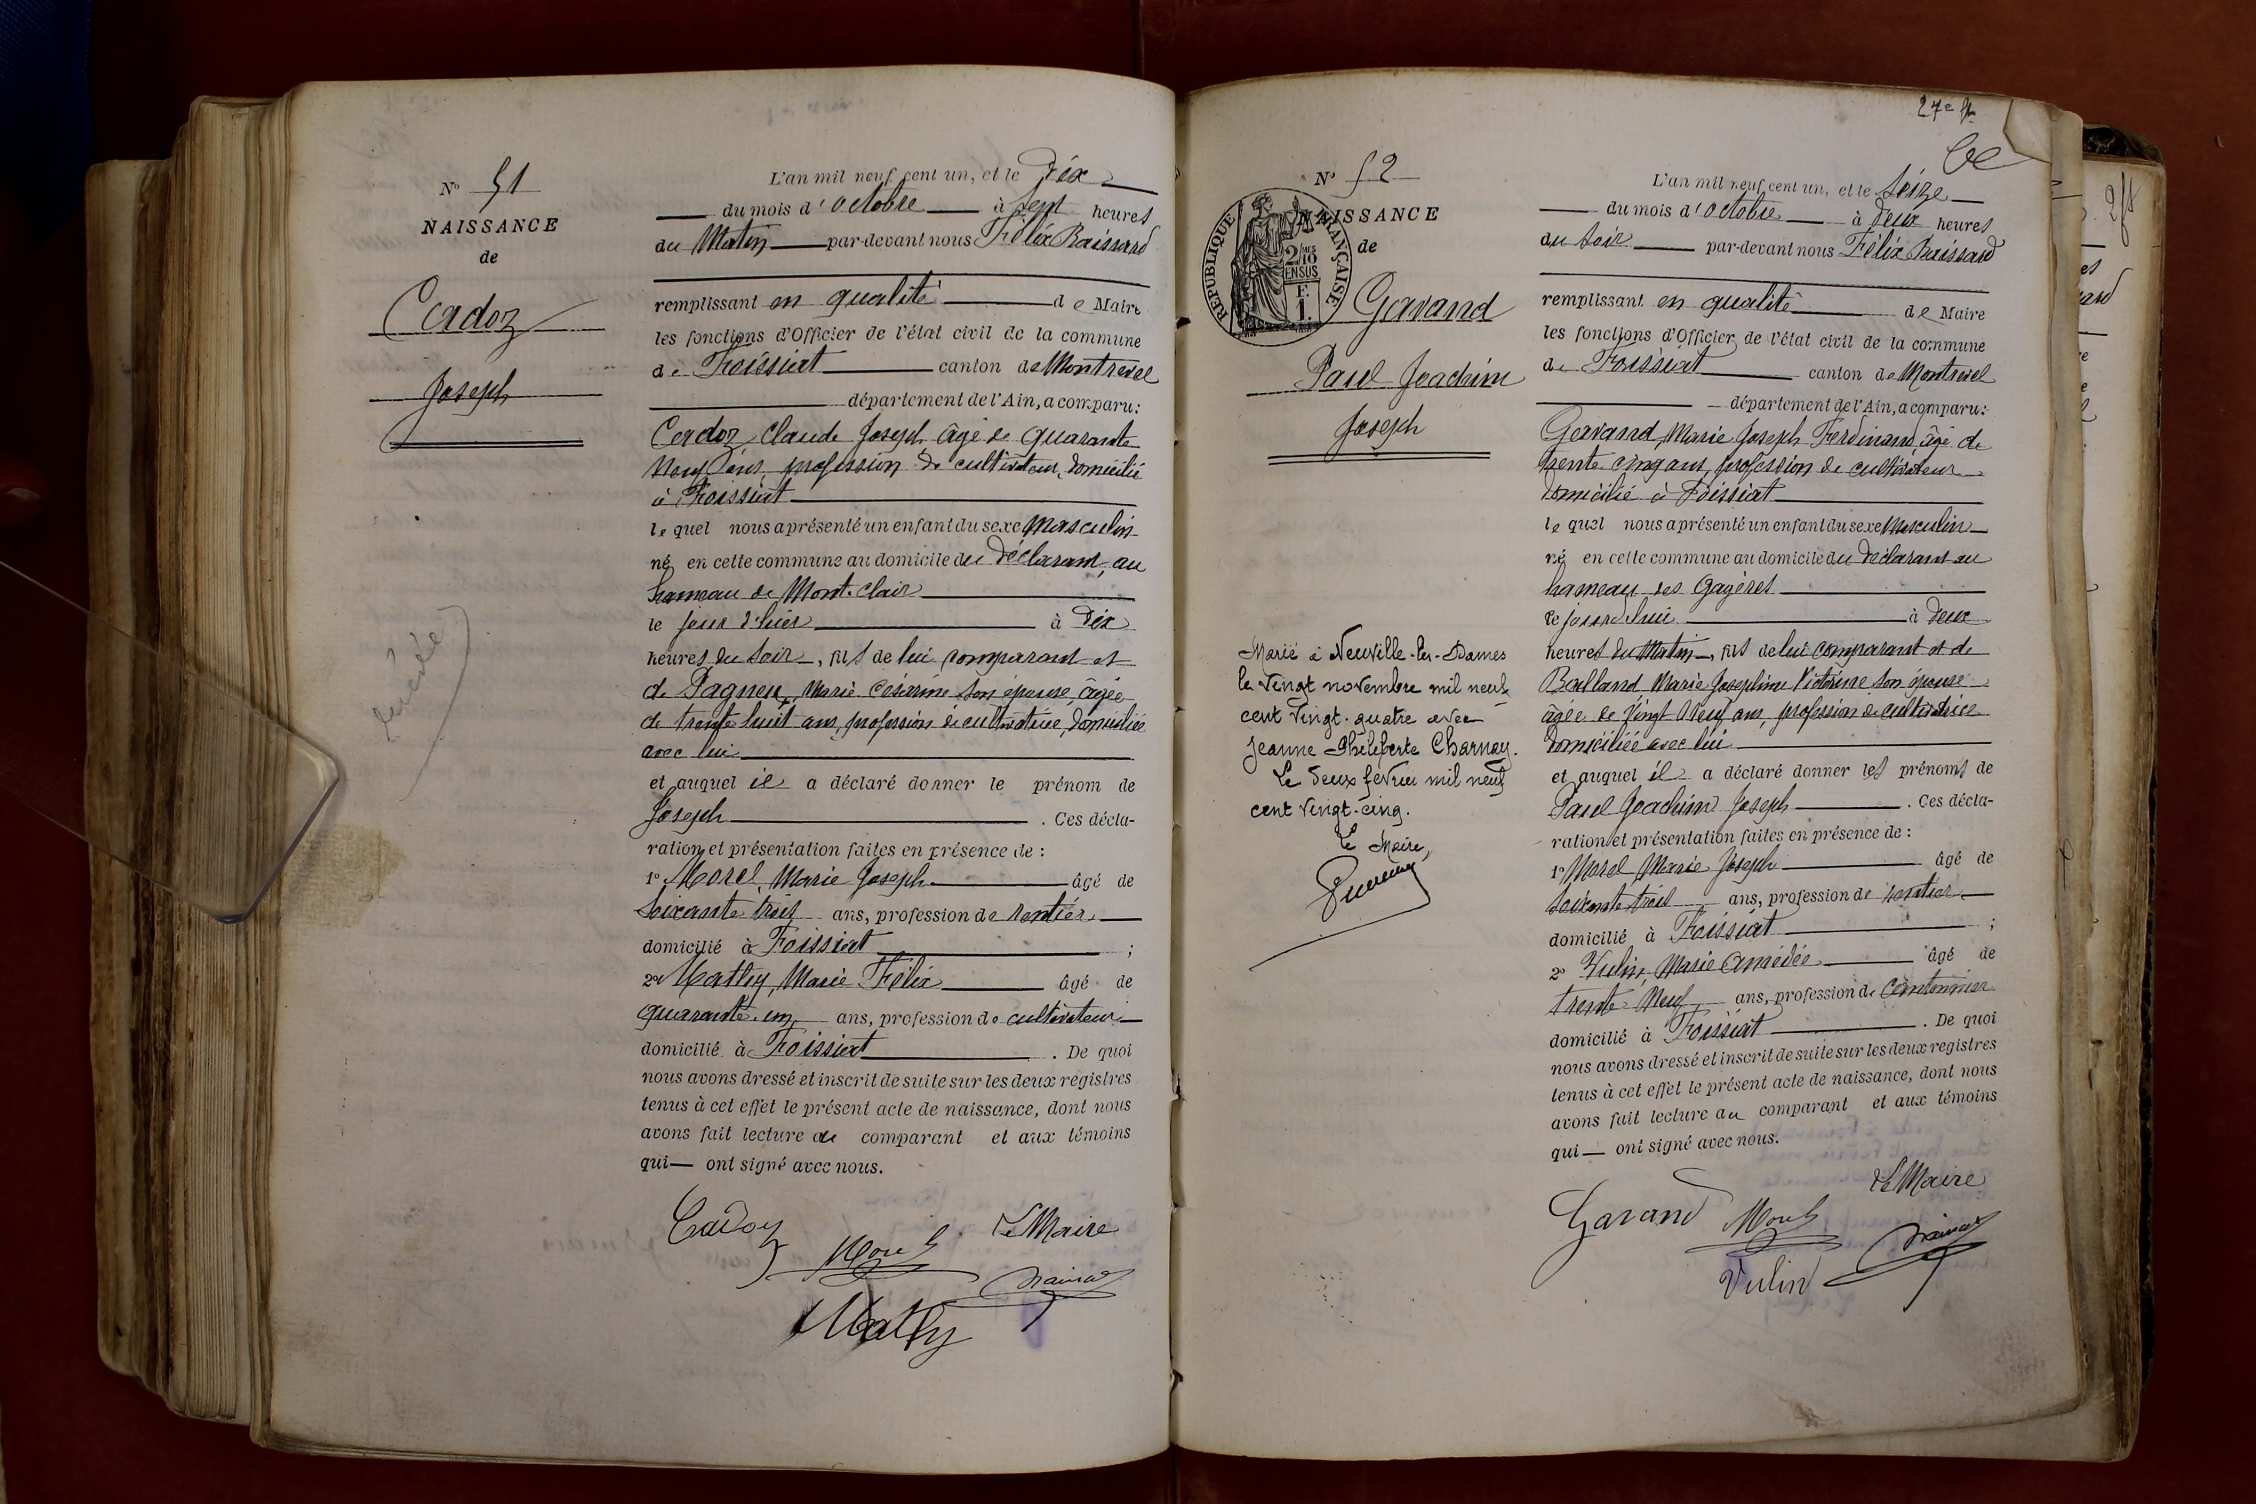 N° 51
NAISSANCE
de
Cadoz
Joseph
L'an mil neuf cent un, et le Dix
du mois d'Octobre à Sept heures
du Matin par-devant nous Félix Baissard
remplissant en qualité de Maire
les fonctions d'Officier de l'état civil de la commune
de Foissiat canton de Montrevel
département de l'Ain, a comparu:
Cadoz Claude Joseph âgé de quarante
Neuf ans, profession de cultivateur, domicilié
à Foissiat
le quel nous a présenté un enfant du sexe Masculin
né en cette commune au domicile du déclarant, au
hameau de Mont-Clair
le jour d'hier à Dix
heures du Soir, fils de lui comparant et
de Pagneux, Marie Césarine son épouse, âgée
de trente huit ans, profession de cultivatrice, domiciliée
avec lui
et auquel il a déclaré donner le prénom de
Joseph . Ces décla-
ration et présentation faites en présence de :
1° Morel, Marie Joseph âgé de
Soixante trois ans, profession de rentier
domicilié à Foissiat ;
2° Mathy, Marie Félix âgé de
quarante un ans, profession de cultivateur
domicilié à Foissiat . De quoi
nous avons dressé et inscrit de suite sur les deux registres
tenus à cet effet le présent acte de naissance, dont nous
avons fait lecture au comparant et aux témoins
qui ont signé avec nous.
Cadoz
Morel
Le Maire
Mathy
27e
N° 52
NAISSANCE
de
RÉPUBLIQUE FRANÇAISE
2/10
EN SUS
F.
1.
Gavand
Paul Joachim
Joseph
Marié à Neuville-les-Dames
le vingt novembre mil neuf
cent vingt-quatre avec
Jeanne Philiberte Charnay.
Le deux février mil neuf
cent vingt-cinq.
Le Maire,
L'an mil neuf cent un, et le Seize
du mois d'Octobre à Deux heures
du Soir par-devant nous Félix Baissard
remplissant en qualité de Maire
les fonctions d'Officier de l'état civil de la commune
de Foissiat canton de Montrevel
département de l'Ain, a comparu:
Gavand, Marie Joseph Ferdinand, âgé de
trente cinq ans, profession de cultivateur
domicilié à Foissiat
le quel nous a présenté un enfant du sexe Masculin
né en cette commune au domicile du déclarant au
hameau des Gagères
ce jourd'hui à deux
heures du Matin, fils de lui comparant et de
Balland, Marie Joséphine Victorine son épouse
âgée de Vingt Neuf ans, profession de cultivatrice
domiciliée avec lui
et auquel il a déclaré donner les prénoms de
Paul Joachim Joseph . Ces décla-
ration et présentation faites en présence de :
1° Morel, Marie Joseph âgé de
Soixante trois ans, profession de rentier
domicilié à Foissiat ;
2° Vulin, Marie Amédée âgé de
trente Neuf ans, profession de Cantonnier
domicilié à Foissiat . De quoi
nous avons dressé et inscrit de suite sur les deux registres
tenus à cet effet le présent acte de naissance, dont nous
avons fait lecture au comparant et aux témoins
qui ont signé avec nous.
Le Maire
Gavand
Morel
Vulin